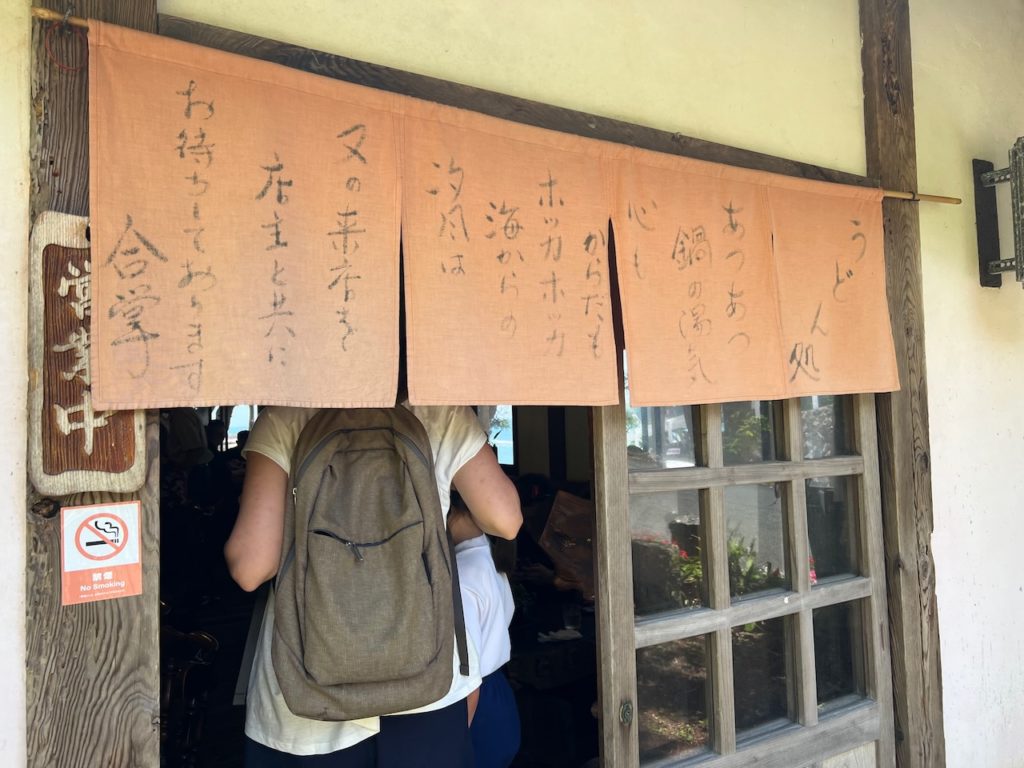 うどん処
あつあつ
鍋の湯気
心も
からだも
ホッカホッカ
海からの
汐風は
又の来店を
店主と共に
お待ちしております
合掌
営業中
禁煙
No Smoking